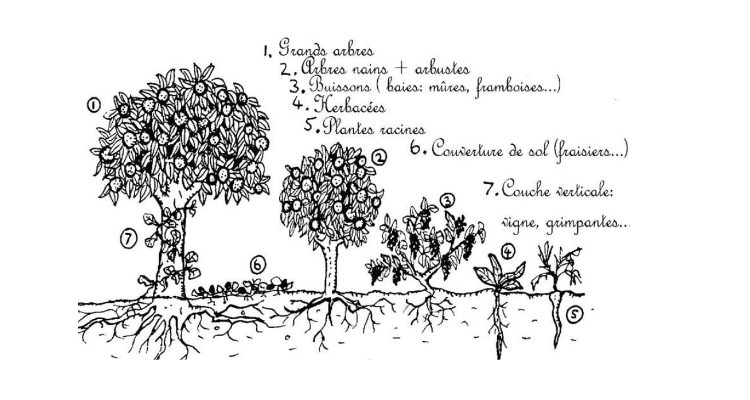 1. Grands arbres
2. Arbres nains + arbustes
3. Buissons ( baies: mûres, framboises...)
4. Herbacées
5. Plantes racines
6. Couverture de sol (fraisiers...)
7. Couche verticale:
vigne, grimpantes...
1
2
3
7
6
4
5